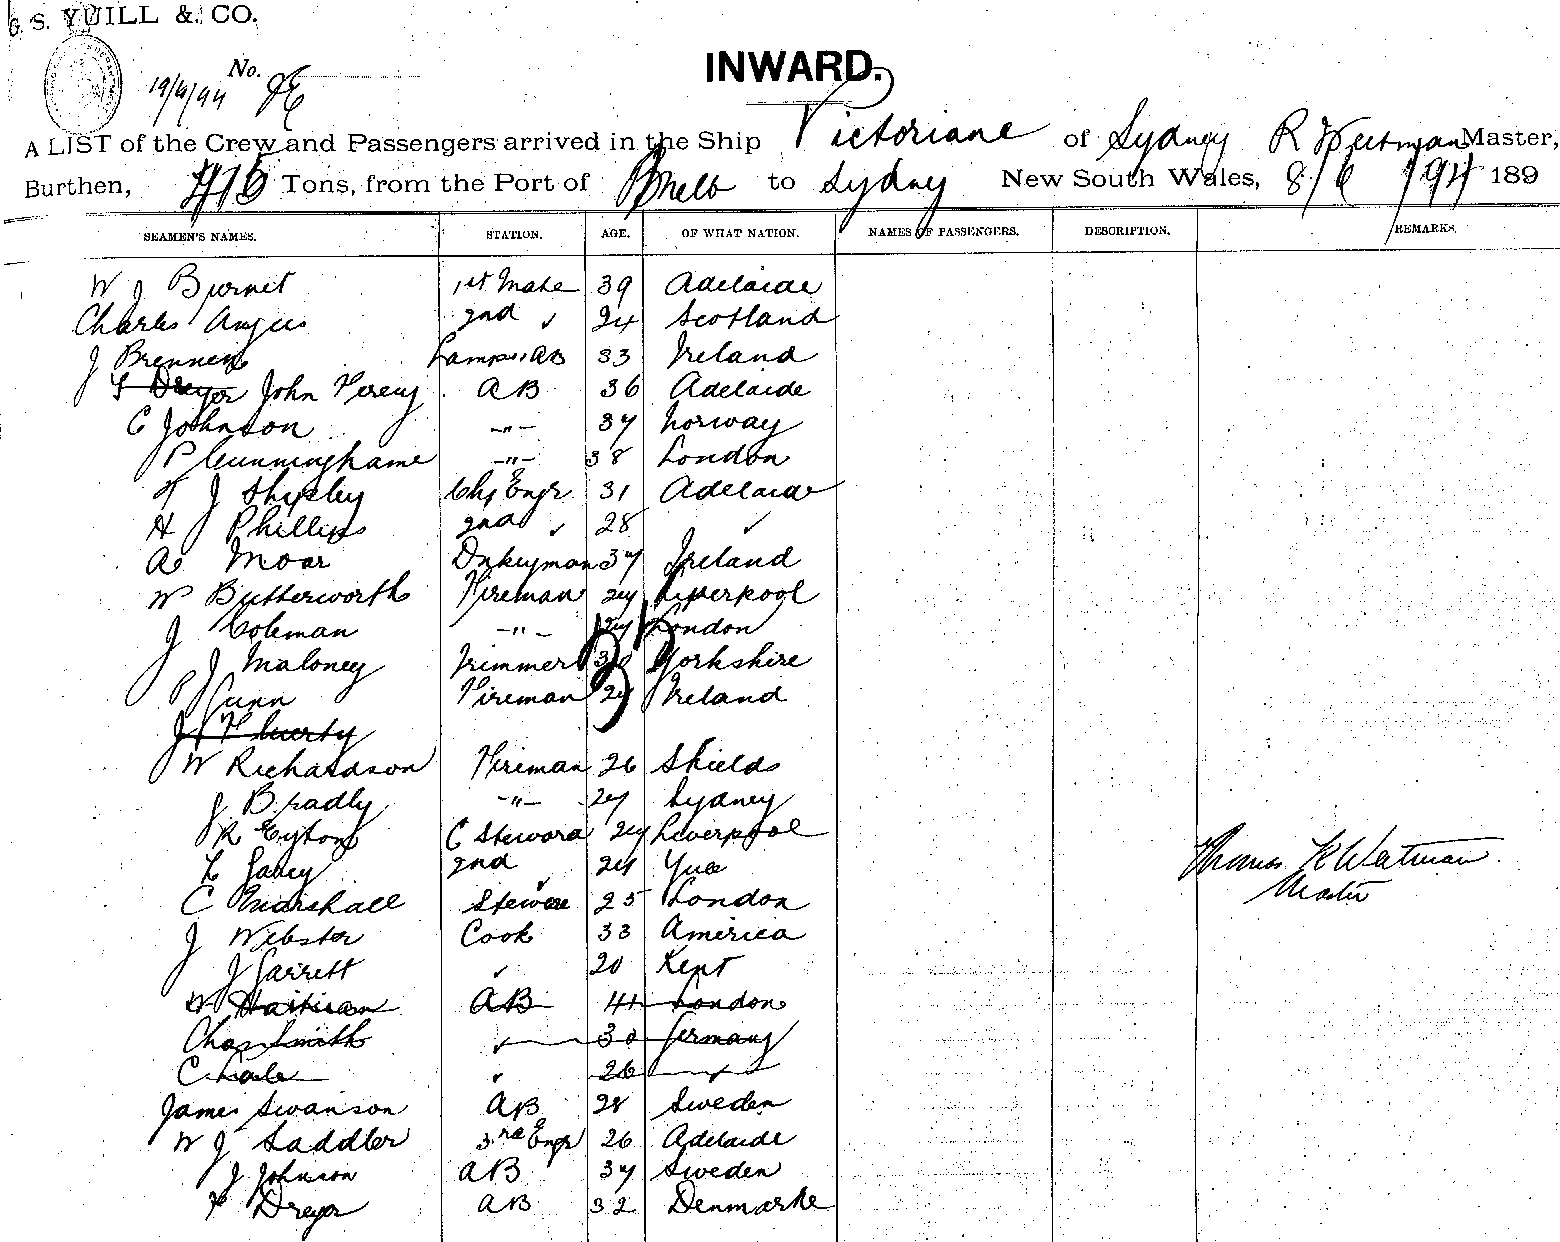 G. S. YUILL & CO.
No.
19/6/94
INWARD.
A LIST of the Crew and Passengers arrived in the Ship Victoriane of Sydney R Weetman Master,
Burthen, Tons, from the Port of Melb to Sydney New South Wales, 8/6/94 189
SEAMEN'S NAMES. STATION. AGE. OF WHAT NATION. NAMES OF PASSENGERS. DESCRIPTION. REMARKS.
W J Burnet 1st Mate 39 Adelaide
Charles Angus 2nd 24 Scotland
J Brennen Lamps & AB 33 Ireland
Dreyer John AB 36 Adelaide
C Johnson -"- 37 Norway
P Cunninghame -"- 38 London
J Shipley Chf Engr 31 Adelaide
H Phillips 2nd 28
A Moar Dnkeyman 37 Ireland
W Butterworth Fireman 27 Liverpool
J Coleman -"- 27 London
J Maloney Trimmer 30 Yorkshire
P Gunn Fireman 27 Ireland
W Richardson Fireman 26 Shields
J Bradly -"- 27 Sydney
R Eytons C Steward 27 Liverpool
2nd 24
C Marshall Steward 25 London
J Webster Cook 33 America
J Garrett 20 Kent
W AB 41 London
Chas Smith 30 Germany
C 26
James Swanson AB 28 Sweden
W J Saddler 3rd Engr 26 Adelaide
J Johnson AB 37 Sweden
F Dreyer AB 32 Denmarke
Thomas R Weetman
Master